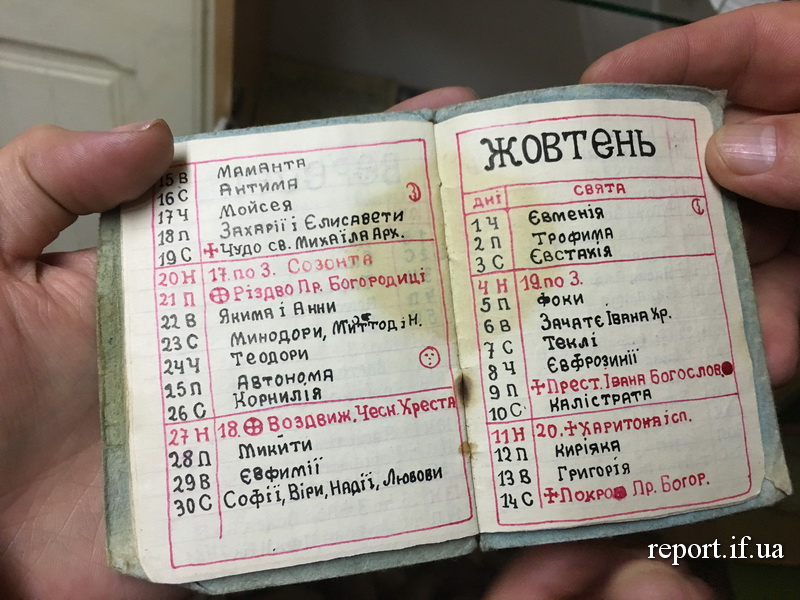 15 В Маманта
16 С Антима
17 Ч Мойсея
18 П Захарії і Єлисавети
19 С Чудо св. Михаїла Арх.
20 Н 17. по З. Созонта
21 П Різдво Пр. Богородиці
22 В Якима і Анни
23 С Минодори, і Н.
24 Ч Теодори
25 П Автонома
26 С Корнилія
27 Н 18. Воздвиж. Чесн. Хреста
28 П Микити
29 В Євфимії
30 С Софії, Віри, Надії, Любови
ЖОВТЕНЬ
ДНІ СВЯТА
1 Ч Євменія
2 П Трофима
3 С Євстахія
4 Н 19. по З.
5 П Фоки
6 В Зачатє Івана Хр.
7 С Теклі
8 Ч Євфрозинії
9 П Прест. Івана Богослов.
10 С Калістрата
11 Н 20. Харитона ісп.
12 П Киріяка
13 В Григорія
14 С Покров Пр. Богор.
report.if.ua